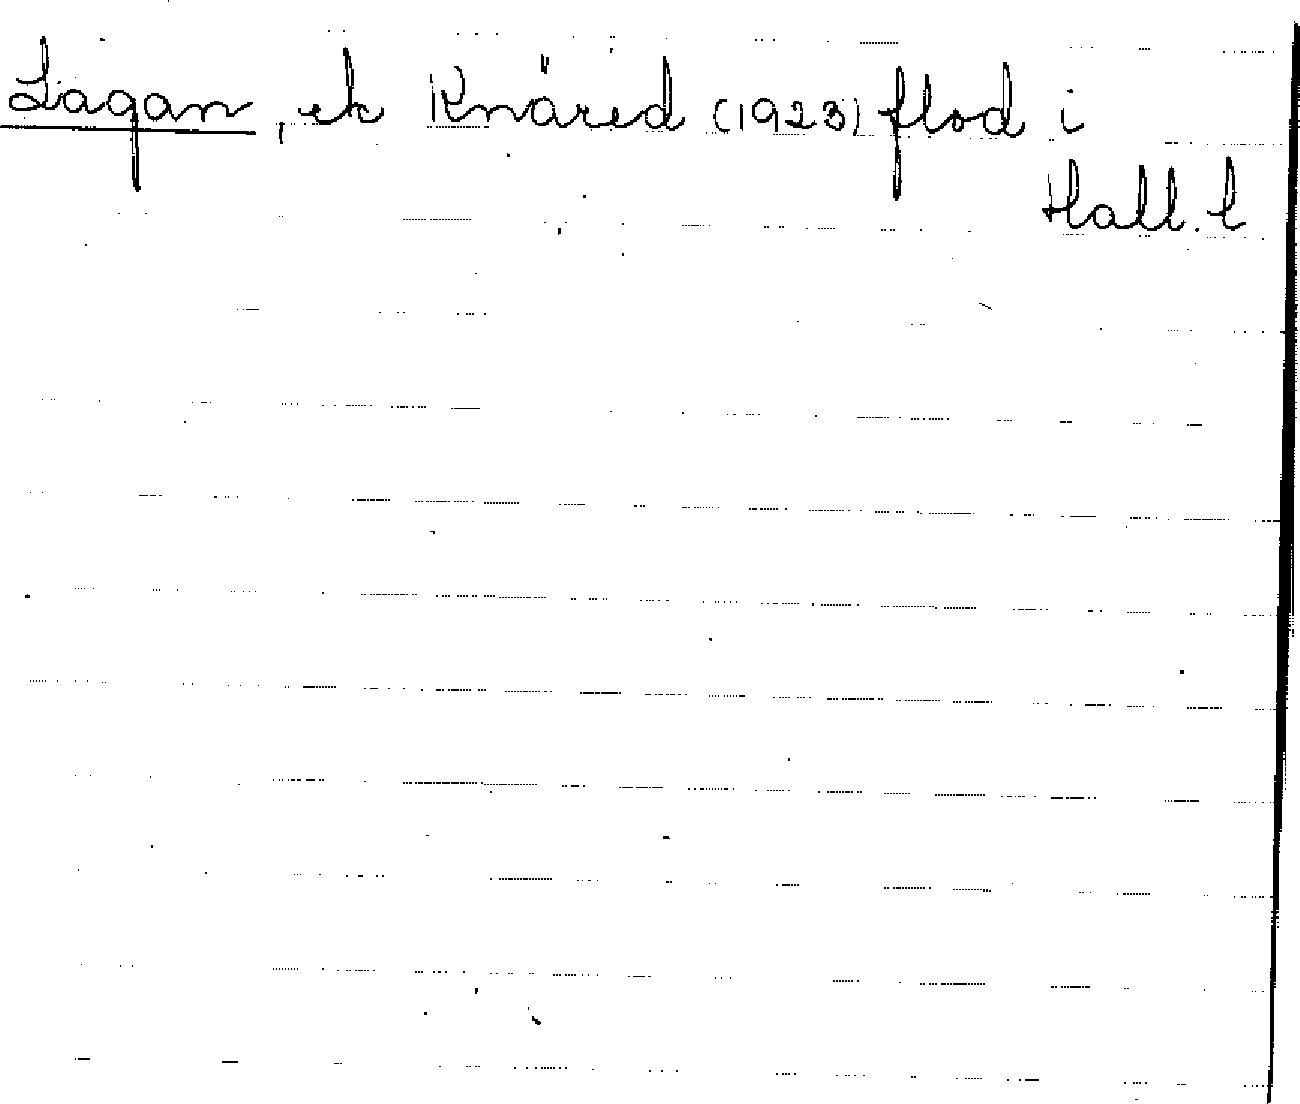 Lagan, ek Knäred (1923) flod i
Hall. l